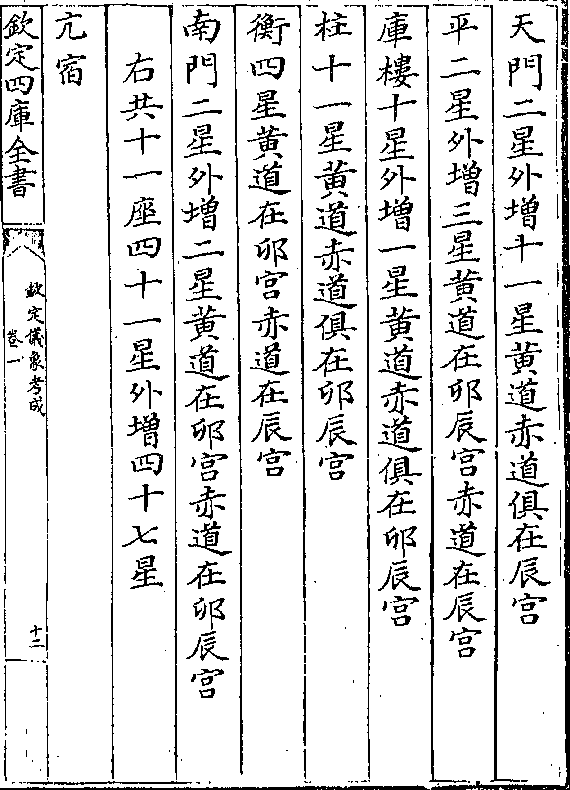 天門二星外增十一星黃道赤道俱在辰宮
平二星外增三星黃道在卯辰宮赤道在辰宮
庫樓十星外增一星黃道赤道俱在卯辰宮
柱十一星黃道赤道俱在卯辰宮
衡四星黃道在卯宮赤道在辰宮
南門二星外增二星黃道在卯宮赤道在卯辰宮
右共十一座四十一星外增四十七星
亢宿
欽定四庫全書
欽定儀象考成
卷一
十二